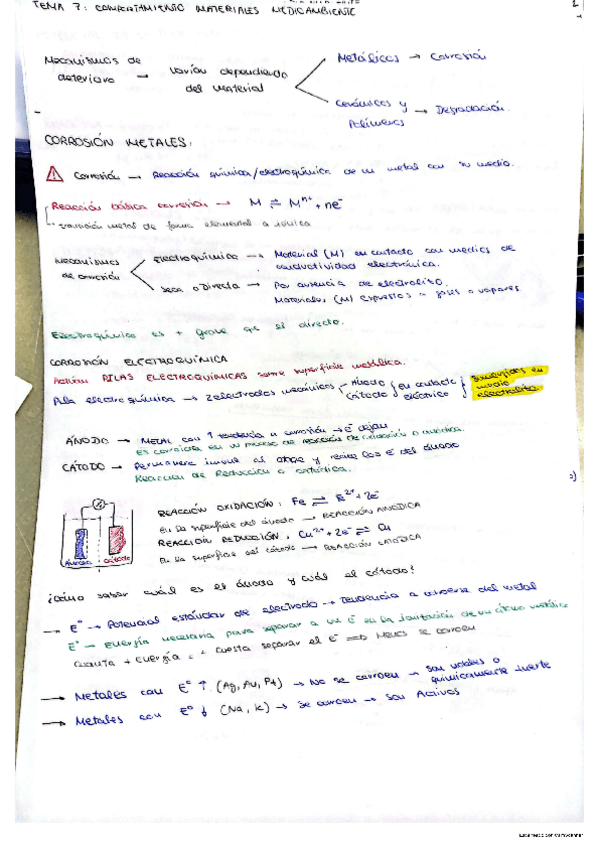 TEMA 7: COMPORTAMIENTO MATERIALES MEDIOAMBIENTE
1
Mecanismos de deterioro → varían dependiendo del material
Metálicos → Corrosión
Cerámicos y Polímeros → Degradación.
CORROSIÓN METALES.
Corrosión → Reacción química/electroquímica de un metal con su medio.
Reacción básica corrosión → M ⇌ Mⁿ⁺ + ne⁻
transición metal de forma elemental a iónica
Mecanismos de corrosión
Electroquímica → Material (M) en contacto con medios de conductividad electrónica.
Seca o Directa → Por ausencia de electrolito.
Materiales (M) expuestos a gases o vapores
Electroquímica es + grave que el directo.
CORROSIÓN ELECTROQUÍMICA
Actúan PILAS ELECTROQUÍMICAS sobre superficie metálica.
Pila electroquímica → 2 electrodos mecánicos
Ánodo
Cátodo
en contacto eléctrico
sumergidos en medio electrolito.
ÁNODO → METAL con ↑ tendencia a corrosión → e⁻ dejan.
Es corroída en un proceso de reacción de oxidación o anódica.
CÁTODO → Permanece inmune al ataque y recibe los e⁻ del ánodo
Reacción de Reducción o catódica.
Ánodo
Cátodo
REACCIÓN OXIDACIÓN: Fe ⇌ Fe²⁺ + 2e⁻
En la superficie del ánodo → REACCIÓN ANÓDICA
REACCIÓN REDUCCIÓN: Cu²⁺ + 2e⁻ ⇌ Cu
En la superficie del cátodo → REACCIÓN CATÓDICA
¿Cómo saber cuál es el ánodo y cuál el cátodo?
→ E° → Potencial estándar de electrodo → Tendencia a corroerse del metal
E° → Energía necesaria para separar a un e⁻ en la ionización de un átomo metálico
Cuanta + Energía cuesta separar el e⁻ ⇒ Menos se corroen
→ Metales con E° ↑ (Ag, Au, Pt) → No se corroen → son nobles o químicamente inerte
→ Metales con E° ↓ (Na, K) → se corroen → son Activos